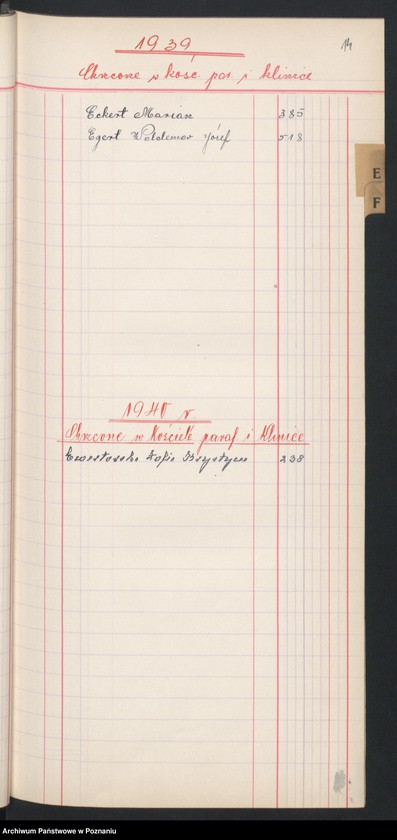 1939
14
Chrzcone w kosc. par. i klinice
Eckert Marian 385
Egert Waldemar Józef 518
E
F
1940 r.
Chrzcone w Kościele paraf i Klinice
Zofia Krystyna 238
Archiwum Państwowe w Poznaniu